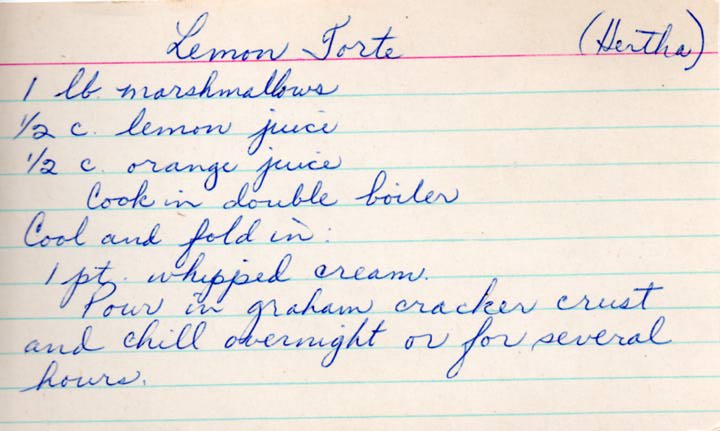 Lemon Torte (Hertha)
1 lb. marshmallows
1/2 c. lemon juice
1/2 c. orange juice
Cook in double boiler
Cool and fold in:
1 pt. whipped cream.
Pour in graham cracker crust
and chill overnight or for several
hours.